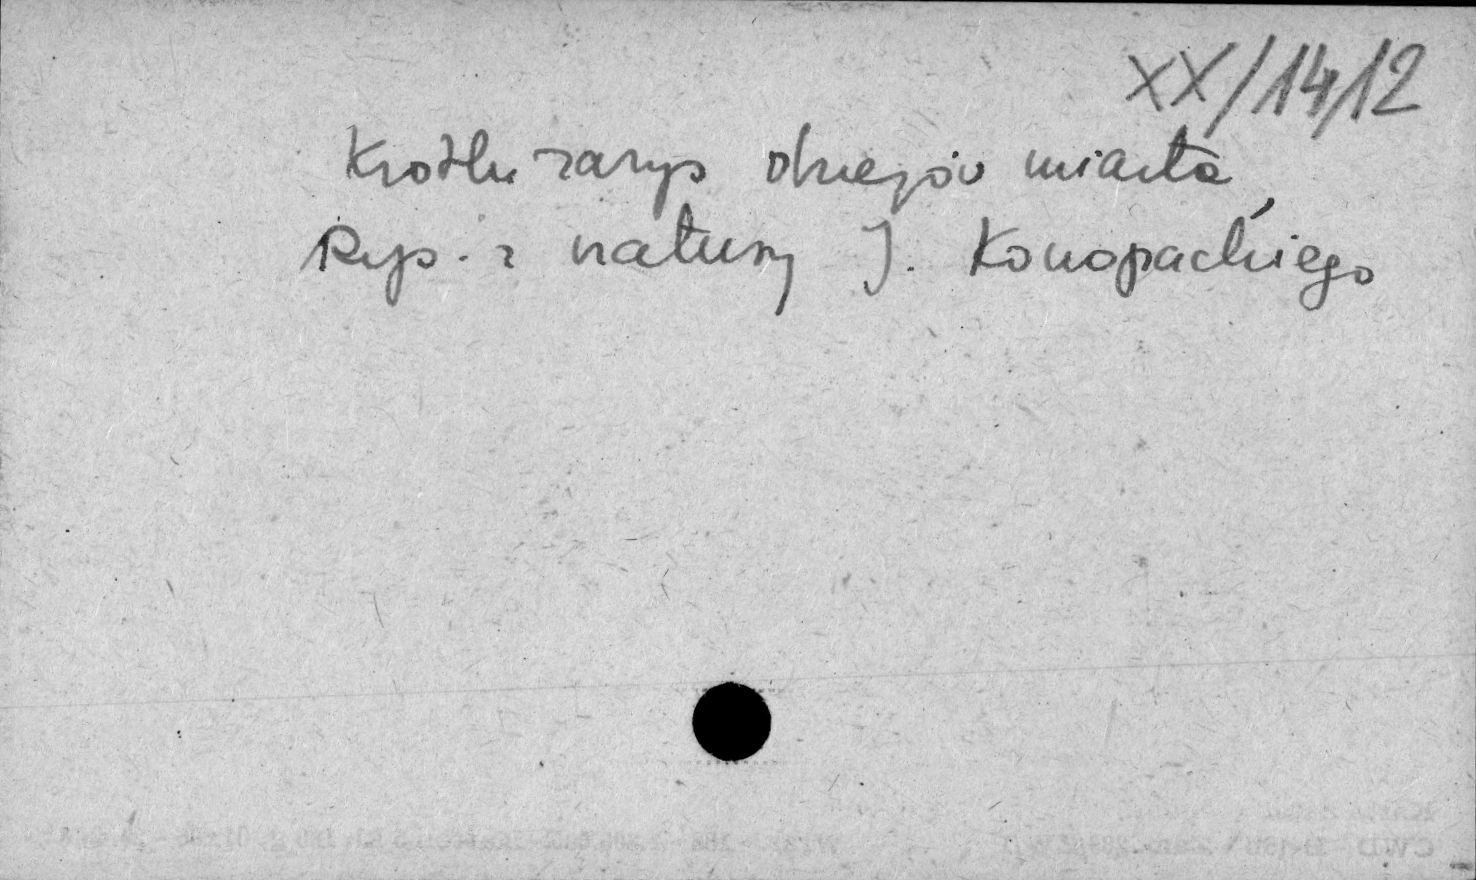 XX/14/12
Krótki zarys dziejów miasta,
Rys. z natury J. Konopackiego